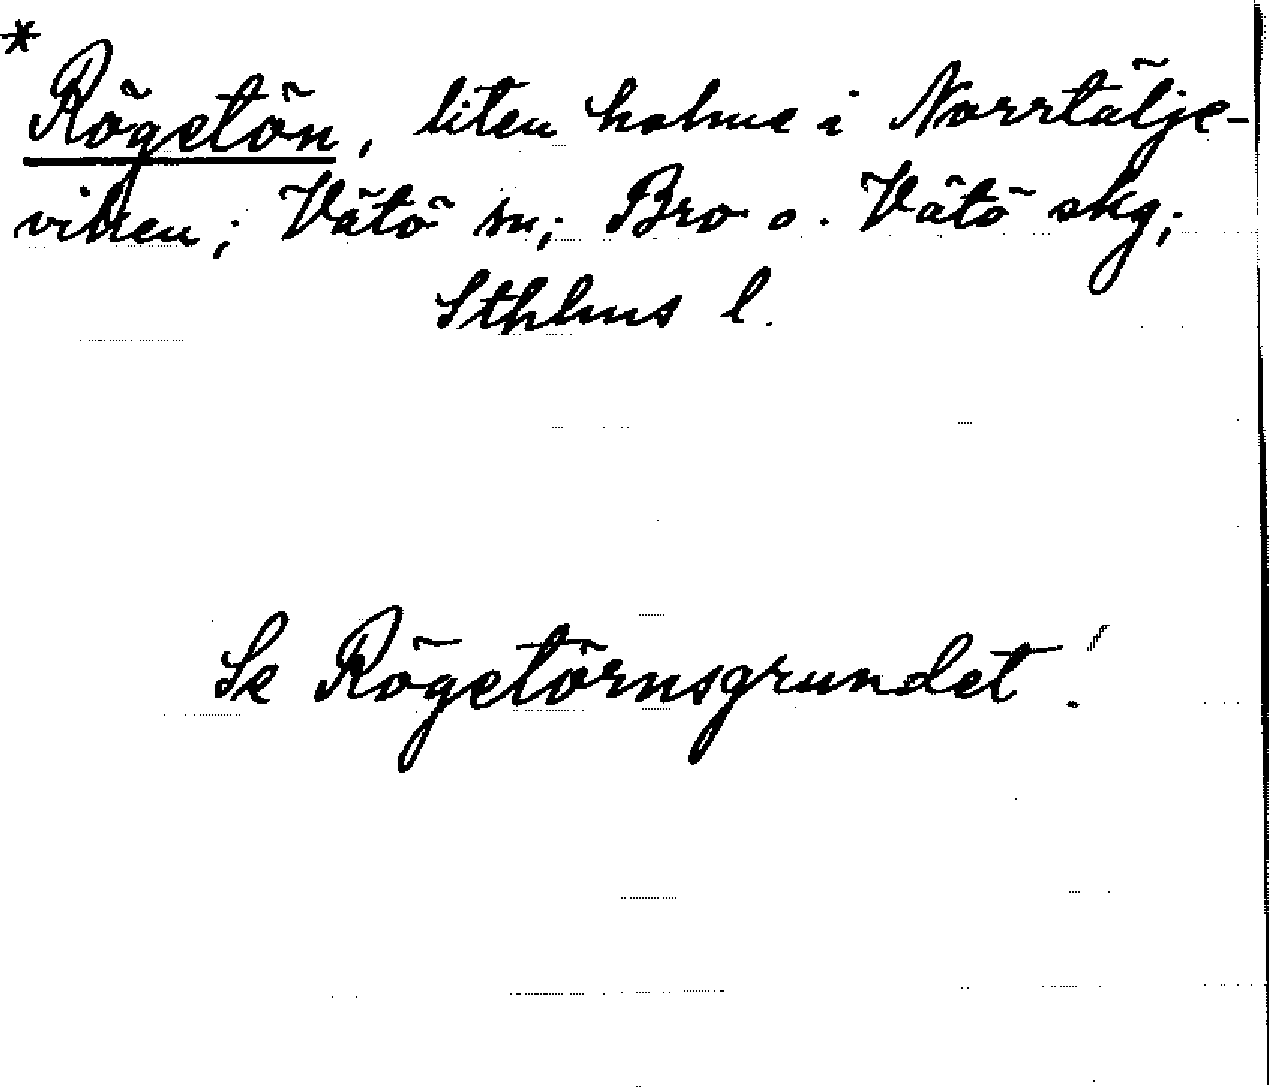 * Rögetön, liten holme i Norrtälje-
viken; Vätö sn; Bro o. Vätö skg;
Sthlms l.
Se Rögetörnsgrundet!